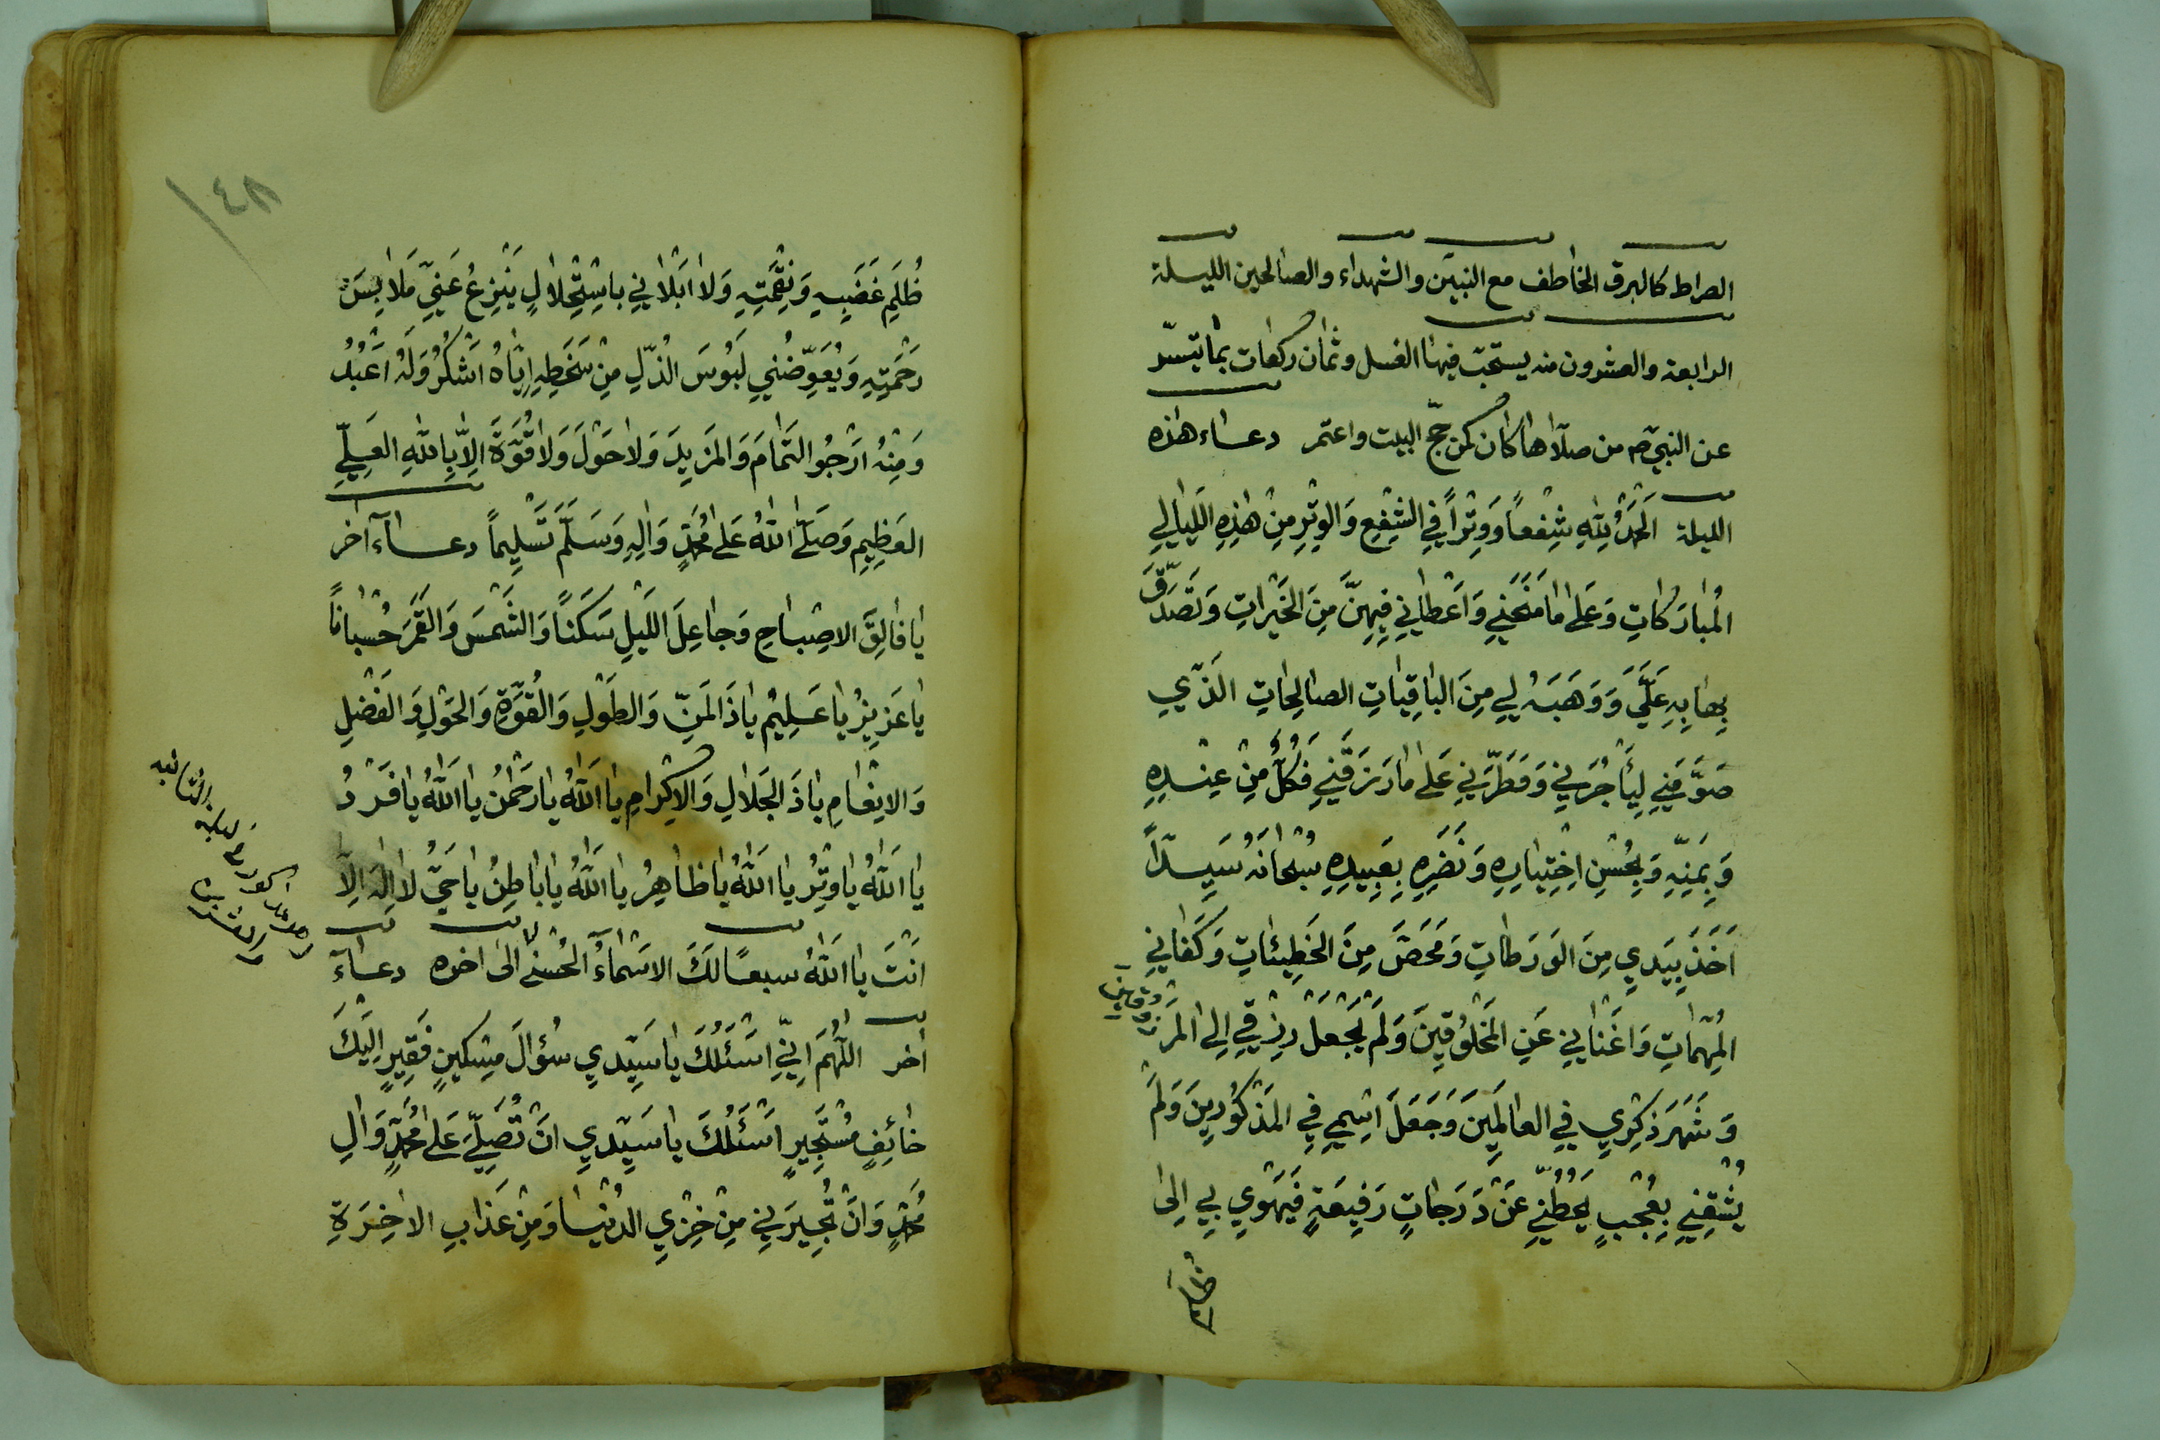 الصراط كالبرق الخاطف مع النبيّن والشهداء والصالحين الليلة
الرابعة والعشرون منه يستحبّ فيها الغسل وثمان ركعات بما تيسّر
عن النبيّ ص من صلّاها كان كمن حجّ البيت واعتمر دعاء هذه
الليلة اَلحَمْدُ لِلّٰهِ شِفْعاً وَوِتْراً فِي الشِفْعِ وَالوِتْرِ مِنْ هٰذِهِ اللَيٰالِي
اَلمُبارَكٰاتِ وَعَلىٰ مٰا مَنَحَنِي وَاَعْطانِي فِيهِنَّ مِنَ الخَيْراتِ وَتَصَدَّقَ
بِهٰا بِهِ عَلَيَّ وَوَهَبَهُ لِي مِنَ البٰاقِيٰاتِ الصٰالِحٰاتِ الَذّي
صَوَّمَنِي لِيَأْجُرَنِي وَفَطَّرَنِي عَلىٰ مٰا رَزَقَنِي فَكُلٌّ مِنْ عِنْدِهِ
وَبِمَنِّهِ وَبِحُسْنِ اخْتِيٰارِهِ وَنَضَرِهِ بِعَبِيدِهِ سُبْحٰانَهُ سَيِّداً
اَخَذَ بِيَدِي مِنَ الوَرَطٰاتِ وَمَحَّصَ مِنَ الخَطِيئٰاتِ وَكَفٰانِي
المُهِمّٰاتِ وَاَغْنٰانِي عَنِ المَخْلُوقِينَ وَلَمْ يَجْعَلْ رِزْقِي اِلىٰ المَرْزُوقِينَ
وَشَهَرَ ذِكْرِي فِي العٰالَمِينَ وَجَعَلَ اسْمِي فِي المَذْكُورِينَ وَلَمْ
يُشْقِنِي بِعُجْبٍ يَحُطُّنِي عَنْ دَرَجٰاتٍ رَفِيعَةٍ فَيَهْوِي بِي اِلىٰ
ظُلَمِ
١٤٨
ظُلَمِ غَضَبِهِ وَنِقْمَتِهِ وَلا اَبْلٰانِي بِاسْتِحْلالٍ يَنْزِعُ عَنِّي مَلٰابِسَ
رَحْمَتِهِ وَيُعَوِّضُنِي لَبُوسَ الذُلِّ مِنْ سَخَطِهِ اِيّٰاهُ اَشْكُرُ وَلَهُ اَعْبُدُ
وَمِنْهُ اَرْجُو التَمٰامَ وَالمَزِيدَ وَلا حَوْلَ وَلا قُوَّةَ اِلّا بِاللّٰهِ العَلِيِّ
العَظِيمِ وَصَلَّى اللّٰهُ عَلىٰ مُحَمَّدٍ وَاٰلِهِ وَسَلَّمَ تَسْلِيماً دعاء آخر
يٰا فٰالِقَ الاصِبٰاحِ وَجٰاعِلَ اللَيْلِ سَكَناً وَالشَمْسَ وَالقَمَرَ حُسْبٰاناً
يٰا عَزِيزُ يٰا عَلِيمُ يٰا ذَا المَنِّ وَالطَوْلِ وَالقُوَّةِ وَالحَوْلِ وَالفَضْلِ
وَالاِنْعٰامِ يٰا ذَا الجَلٰالِ وَالاِكْرٰامِ يٰا اَللّٰهُ يٰا رَحْمٰنُ يٰا اَللّٰهُ يٰا فَرْدُ
يٰا اَللّٰهُ يٰا وِتْرُ يٰا اَللّٰهُ يٰا ظٰاهِرُ يٰا اَللّٰهُ يٰا بٰاطِنُ يٰا حَيُّ لا اِلٰهَ اِلّا
اَنْتَ يٰا اَللّٰهُ سبعًا لَكَ الاَسْمٰآءُ الحُسْنٰى الى اخره دعاء
اخر اللّٰهُمَ اِنِّي اَسْئَلُكَ يٰا سَيِّدِي سُؤٰالَ مِسْكِينٍ فَقِيرٍ اِلَيْكَ
خٰائِفٍ مُسْتَجِيرٍ اَسْئَلُكَ يٰا سَيِّدِي اَنْ تُصَلِّيَ عَلىٰ مُحَمَّدٍ وَاٰلِ
مُحَمَّدٍ وَاَنْ تُجِيرَنِي مِنْ خِزْيِ الدُنْيٰا وَمِنْ عَذٰابِ الاٰخِرَةِ